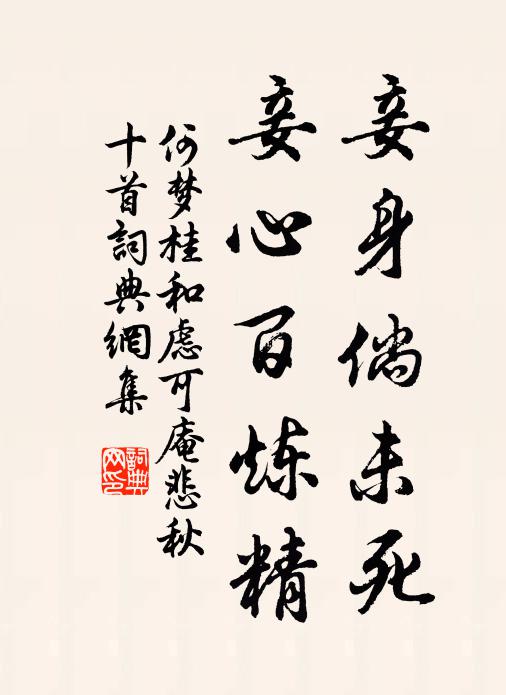 妾身倘未死
妾心百炼精
何梦桂和虑可庵悲秋
十首詞典網集
詞典網印